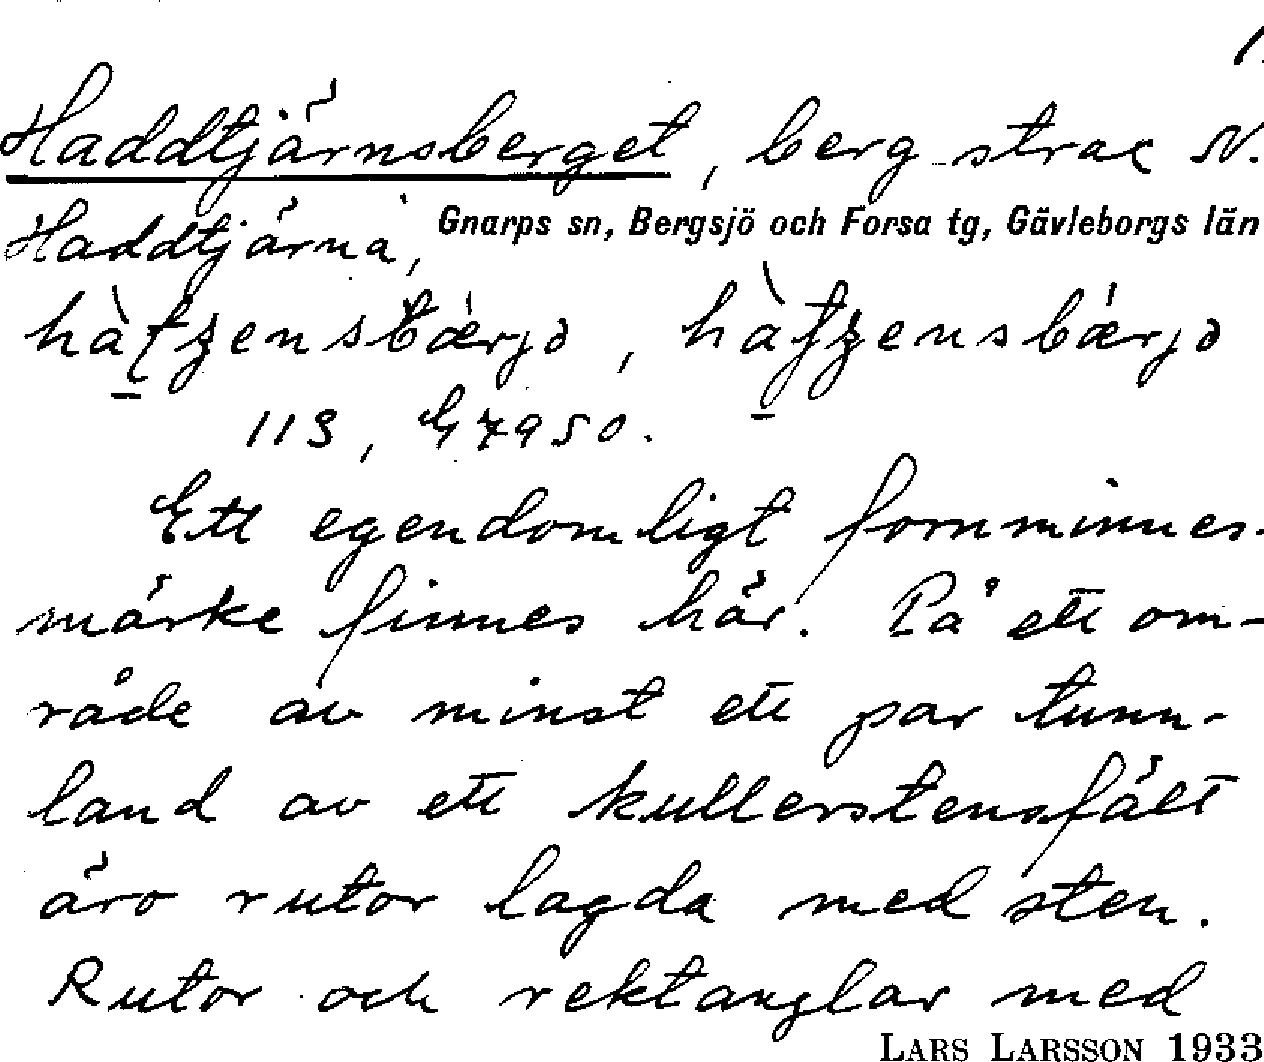 1.
Haddtjärnsberget, berg strax N.
Haddtjärna,
Gnarps sn, Bergsjö och Forsa tg, Gävleborgs län
113, G7950.
Ett egendomligt fornminnes-
märke finnes här. På ett om-
råde av minst ett par tunn-
land av ett kullerstensfält
äro rutor lagda med sten.
Rutor och rektanglar med
LARS LARSSON 1933